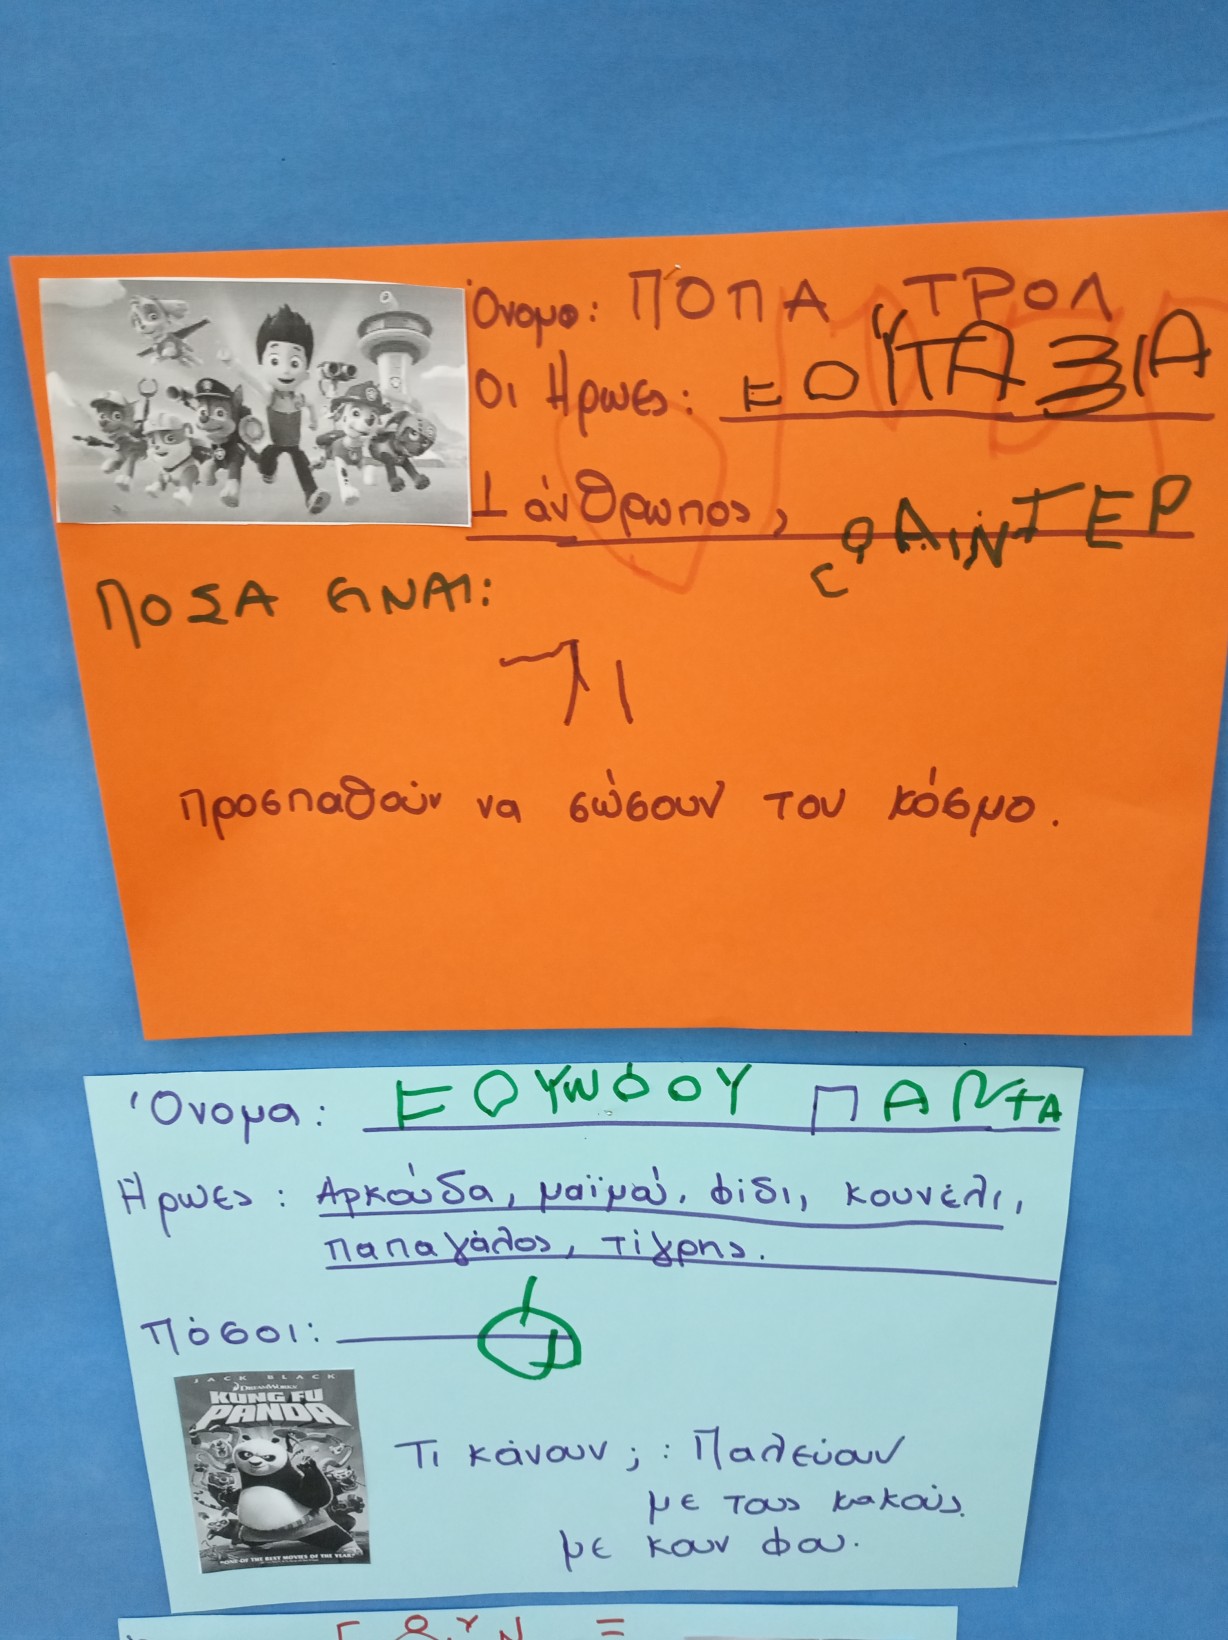 Όνομα: ΠΟΠΑ ΤΡΟΛ
Οι Ηρωες: ΕΟΥΤΑΞΙΑ
1 άνθρωπος,
ΠΟΣΑ ΕΙΝΑΙ:
προσπαθούν να σώσουν τον κόσμο.
Όνομα: ΕΟΥΝΦΟΥ ΠΑΝΤΑ
Ηρωες: Αρκούδα, μαϊμού, φίδι, κουνέλι,
παπαγάλος, τίγρης.
Πόσοι:
JACK BLACK
DREAMWORKS
KUNG FU
PANDA
"ONE OF THE BEST MOVIES OF THE YEAR"
Τι κάνουν; : Παλεύουν
με τους κακούς
με κουν φου.